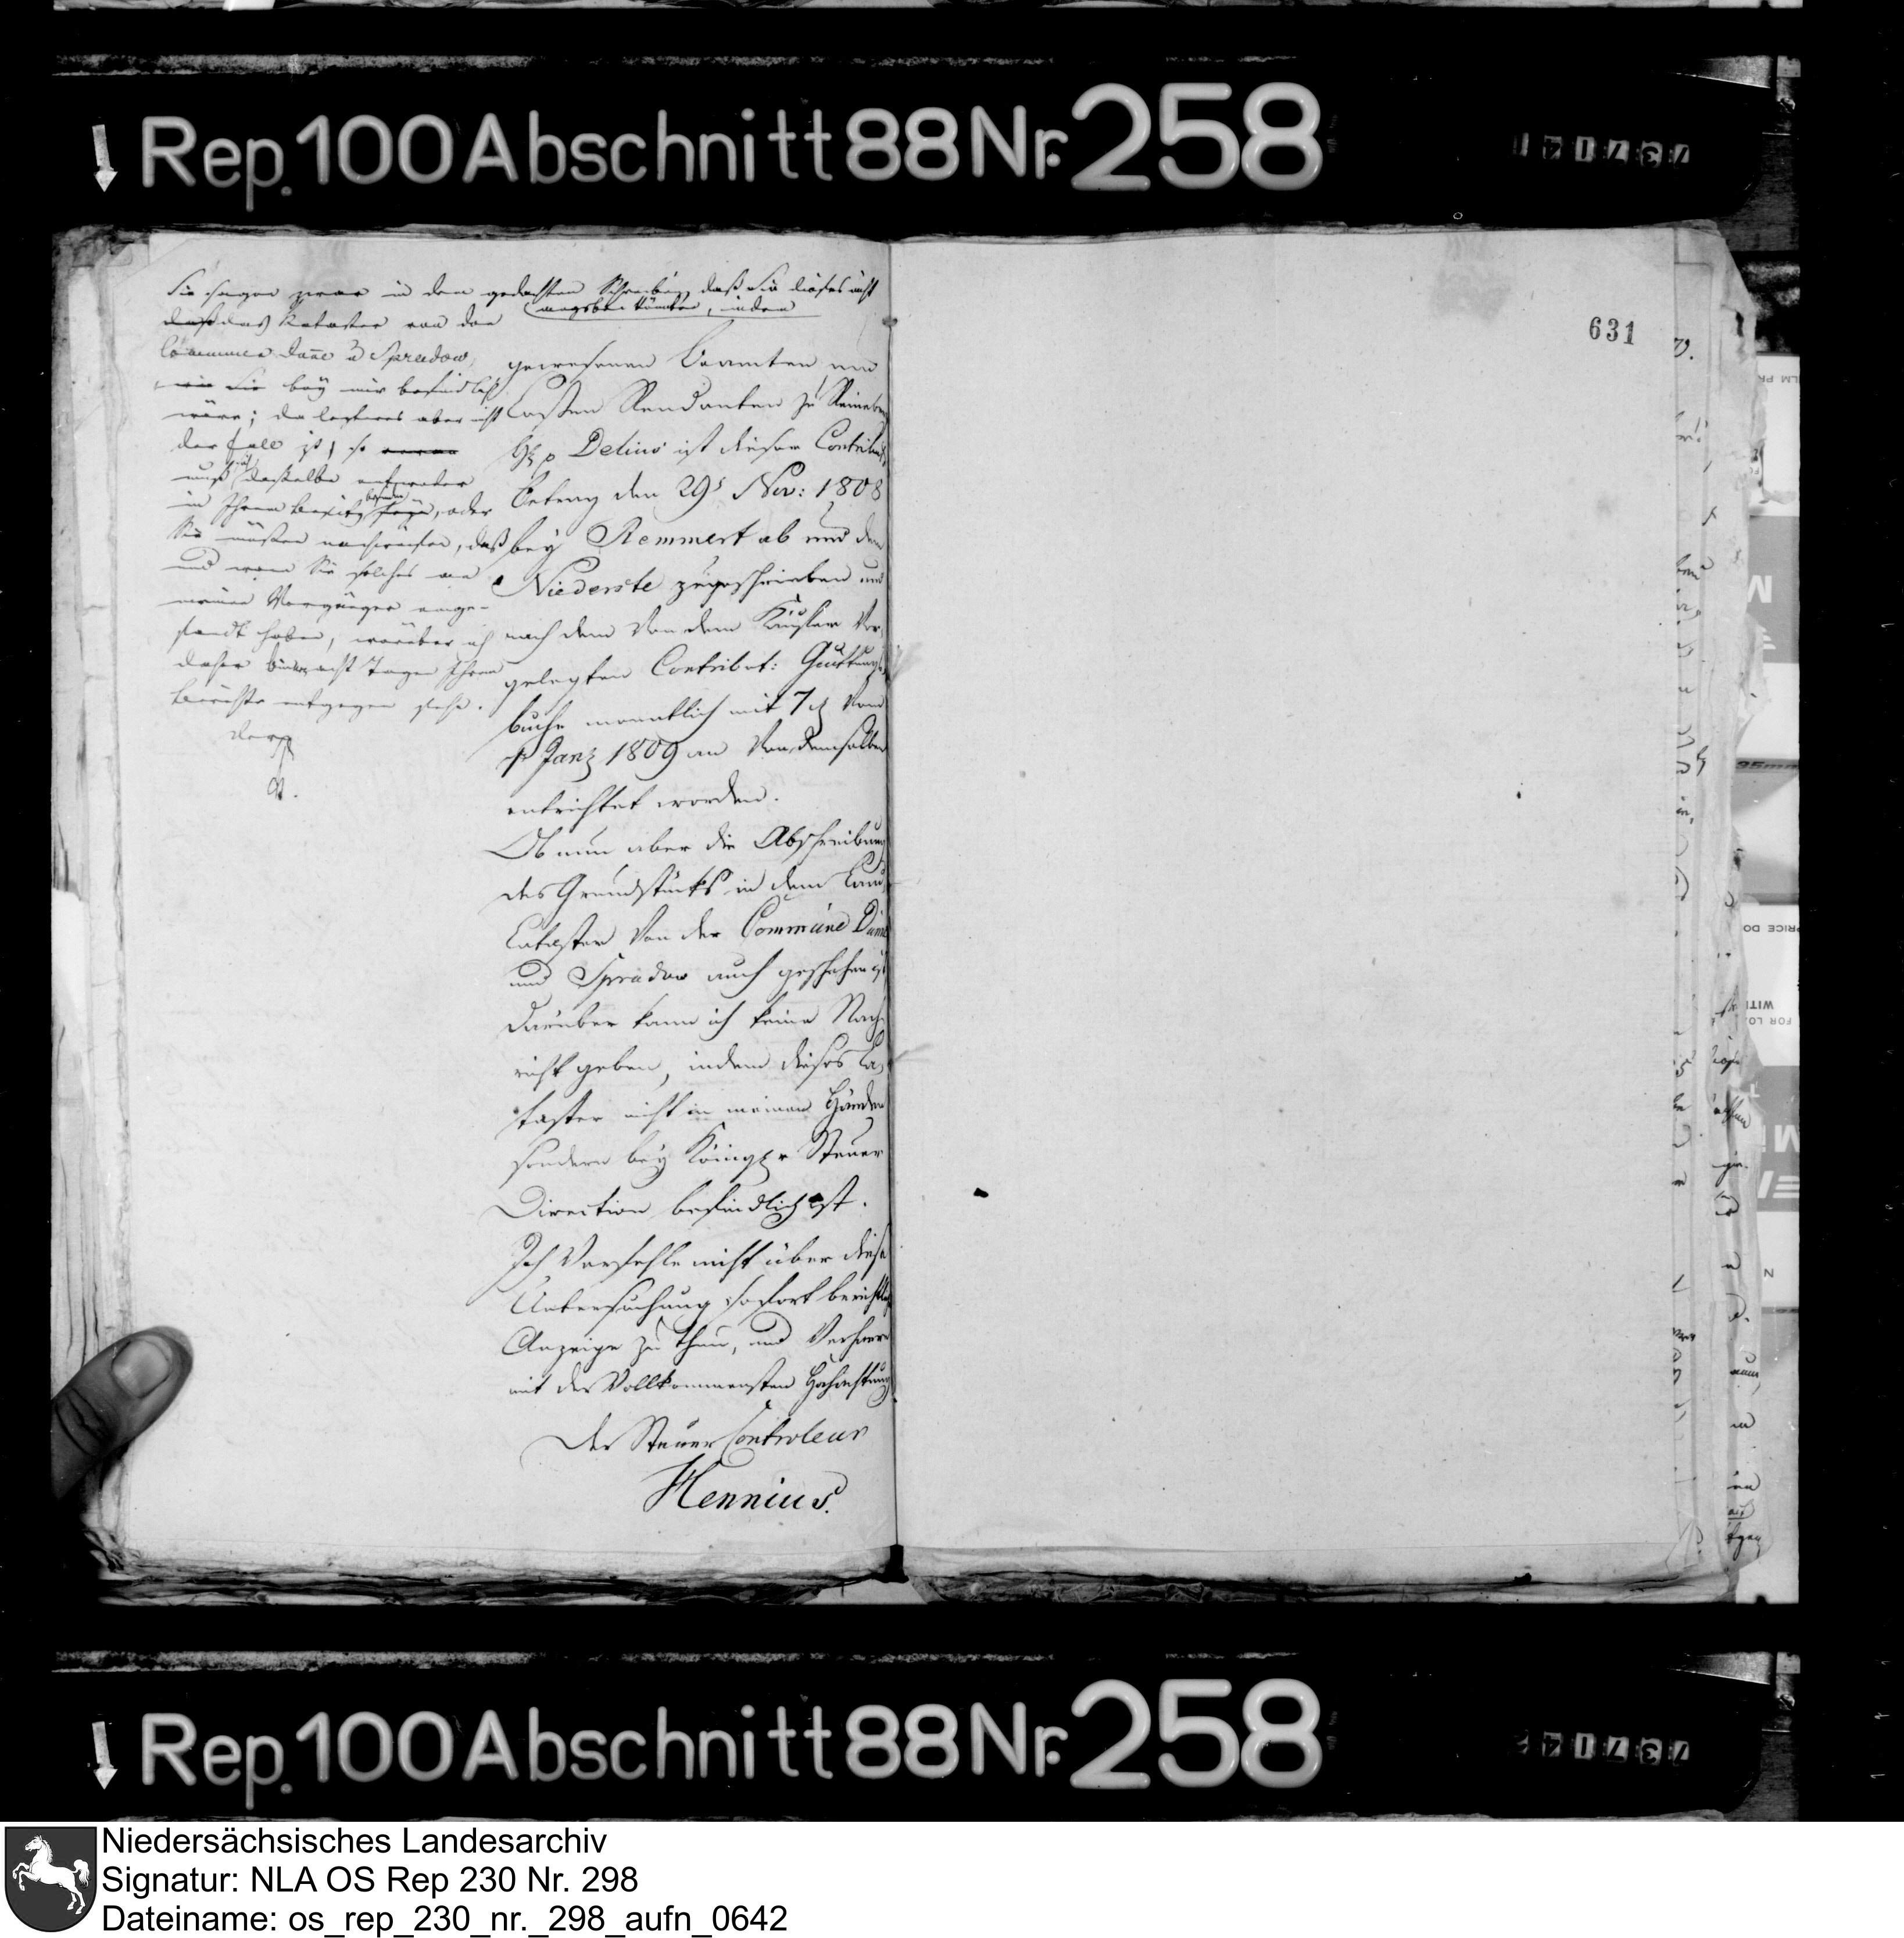 Rep. 100 Abschnitt 88 Nr. 258
631
Sie sagen zwar in dem gedachten Schreiben, daß Sie dieses nicht
angeben könnten, indem
daß das Kataster von den
Commünen Dünne u Spradow,
wie Sie bey mir befindlich
wäre; da letzteres aber nicht
der Fall ist, so
muß dasselbe entweder
in Ihrem Besitz seyn, oder
Sie müßen nachweisen, daß
und wann Sie solches an
meinen Vorgänger einge-
sandt haben, worüber ich
daher binnen acht Tagen Ihrem
Berichte entgegen sehe.
gewesenen Beamten und
Cassen Rendanten zu Reineberg
H p Delius ist dieser Contribut:
Betrag den 29t Nov: 1808
bey Remmert ab und dem
Niederste zugeschrieben und
nach dem von dem Käufer vor
gelegten Contribut: Quittungs
buche monatlich mit 7 vom
Janr 1809 an von demselben
entrichtet worden.
Ob nun aber die Abschreibung
des Grundstücks in dem Land
Cataster von der Commüne Dünne
und Spradow auch geschehen ist
darüber kann ich keine Nach
richt geben, indem dieses Ca,
taster nicht in meinen Händen
sondern bey Königl. Steuer
Direction befindlich ist.
Ich verfehle nicht über diese
Untersuchung sofort berichtl.
Anzeige zu thun, und verharre
mit der vollkommensten Hochachtung
Der Steuer Controleur
Hennius.
Rep. 100 Abschnitt 88 Nr. 258
Niedersächsisches Landesarchiv
Signatur: NLA OS Rep 230 Nr. 298
Dateiname: os_rep_230_nr._298_aufn_0642